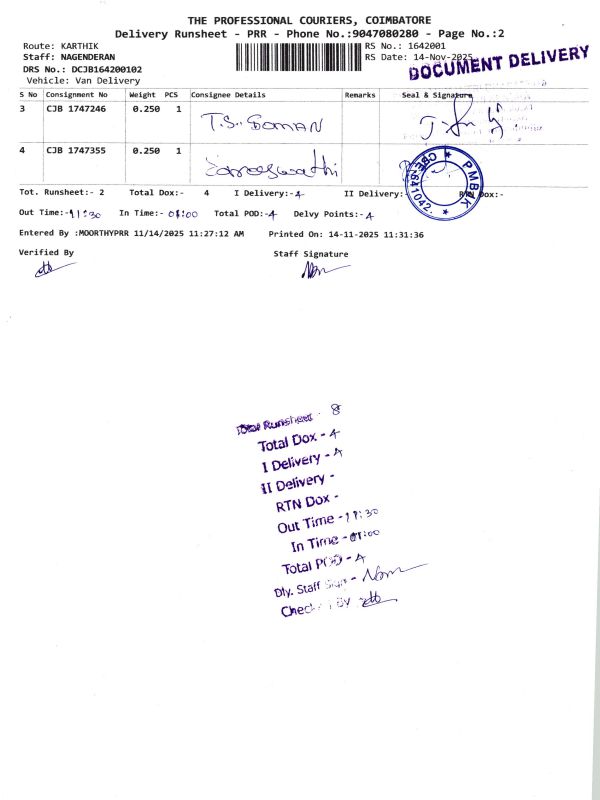 THE PROFESSIONAL COURIERS, COIMBATORE
Delivery Runsheet - PRR - Phone No.:9047080280 - Page No.:2
Route: KARTHIK RS No.: 1642001
Staff: NAGENDERAN RS Date: 14-Nov-2025
DRS No.: DCJB164200102
DOCUMENT DELIVERY
Vehicle: Van Delivery
S No Consignment No Weight PCS Consignee Details Remarks Seal & Signature
3 CJB 1747246 0.250 1 T.S. SOMAN
4 CJB 1747355 0.250 1
PMBK
641042.
Tot. Runsheet:- 2 Total Dox:- 4 I Delivery:-4 II Delivery: Dox:-
Out Time:-11:30 In Time:- 01:00 Total POD:-4 Delvy Points:-4
Entered By :MOORTHYPRR 11/14/2025 11:27:12 AM Printed On: 14-11-2025 11:31:36
Verified By Staff Signature
Total Runsheet - 8
Total Dox - 4
I Delivery - 4
II Delivery -
RTN Dox -
Out Time - 11:30
In Time - 01:00
Total POD - 4
Dly. Staff Sign -
Check By